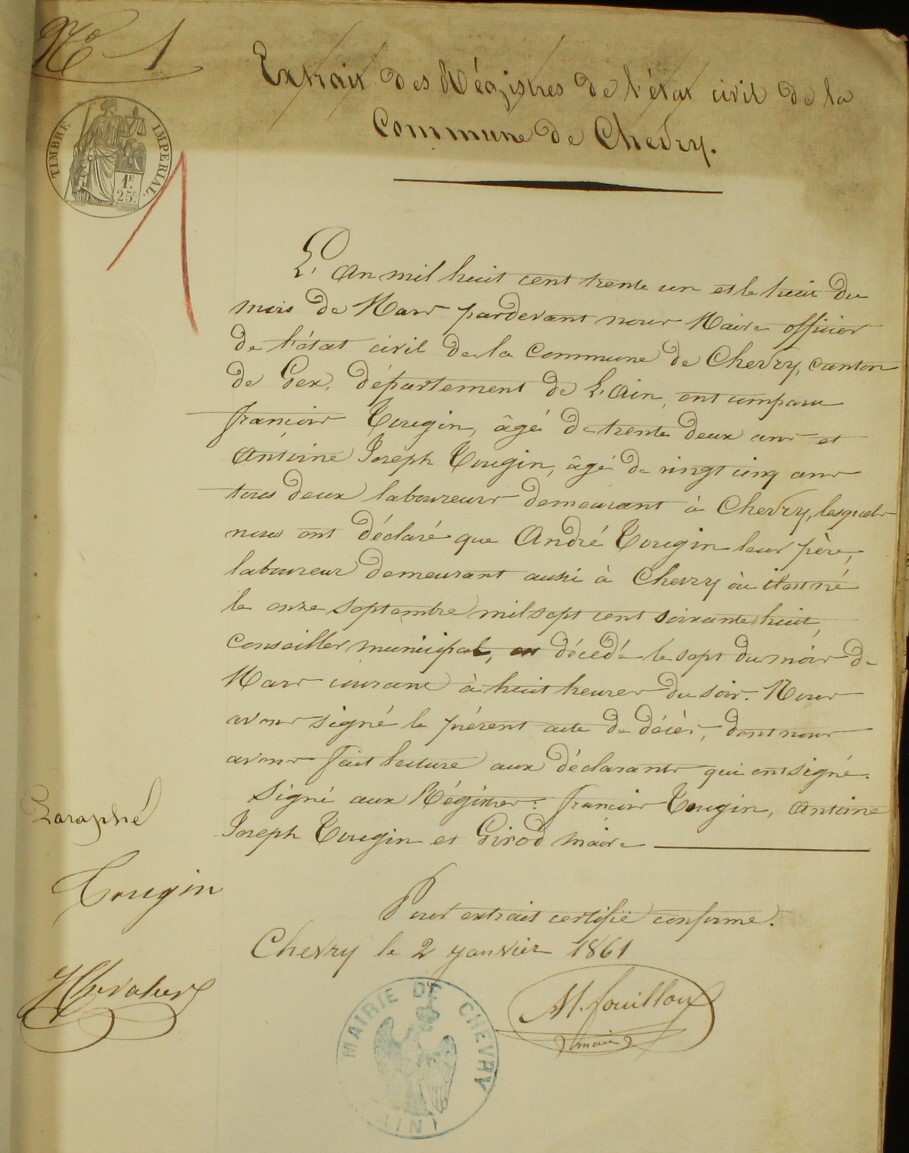 N° 1
Extrait des Régistres de l'état civil de la
Commune de Chevry.
TIMBRE IMPERIAL
1F
25c
1
L'an mil huit cent trente un et le huit du
mois de Mars pardevant nous Maire officier
de l'état civil de la Commune de Chevry, canton
de Gex, département de L'Ain, ont comparu
françois Tougin, âgé de trente deux ans et
Antoine Joseph Tougin, âgé de vingt cinq ans
tous deux laboureurs demeurant à Chevry, lesquels
nous ont déclaré que André Tougin leur père,
laboureur demeurant aussi à Chevry où il est né
le onze septembre mil sept cent soixante huit,
conseiller municipal, est décédé le sept du mois de
Mars courant à huit heures du soir. Nous
avons signé le présent acte de décès, dont nous
avons fait lecture aux déclarants qui ont signé.
Signé aux Régistres: françois Tougin, Antoine
Joseph Tougin et Girod maire
Paraphé
Tougin
Pour extrait certifié conforme.
Chevry le 2 janvier 1861
MAIRIE DE CHEVRY
(AIN)
maire